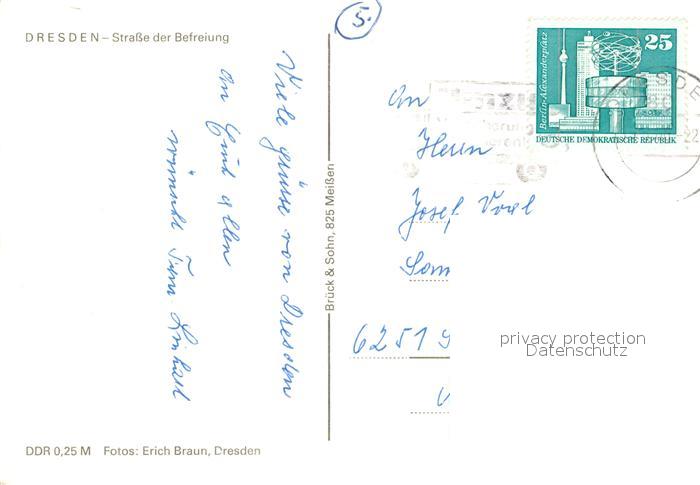 DRESDEN – Straße der Befreiung
5.
Viele grüsse von Dresden
an Euch allen
wünscht
Brück & Sohn, 825 Meißen
Berlin-Alexanderplatz
25
DEUTSCHE DEMOKRATISCHE REPUBLIK
An
Herrn
Josef
6251
privacy protection
Datenschutz
DDR 0,25 M Fotos: Erich Braun, Dresden